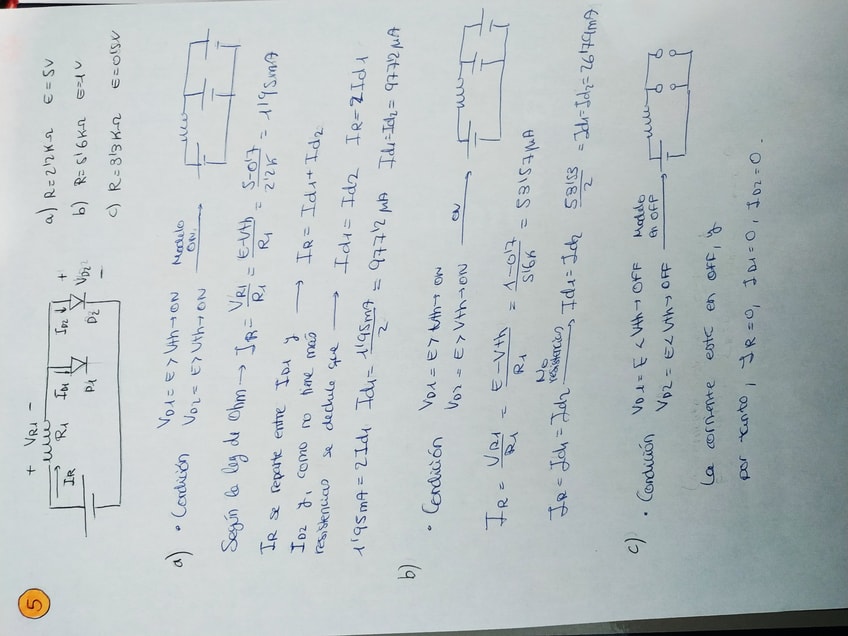 5
+ VR1 -
R1
IR
ID1
D1
ID2
D2
+
VD2
-
a) R=2'2KΩ E=5V
b) R=5'6KΩ E=1V
c) R=3'3KΩ E=0'5V
a) • Condición VD1 = E > Vth → ON Modelo
VD2 = E > Vth → ON ON.
Según la ley de Ohm → IR = VR1/R1 = E-Vth/R1 = 5-0'7/2'2K = 1'95mA
IR se reparte entre ID1 y
ID2 y, como no tiene más → IR = Id1 + Id2
resistencias se deduce que → Id1 = Id2 IR = 2Id1
1'95mA = 2Id1 Id1 = 1'95mA/2 = 977'2 µA Id1=Id2= 977'2 µA
b) • Condición VD1 = E > Vth → ON
VD2 = E > Vth → ON ON
IR = VR1/R1 = E-Vth/R1 = 1-0'7/5'6K = 53'57µA
IR = Id1 = Id2 No resistencias → Id1 = Id2 53'53/2 = Id1=Id2= 26'79mA
c) • Condición VD1 = E < Vth → OFF Modelo
VD2 = E < Vth → OFF en OFF
La corriente está en OFF, y
por tanto, IR = 0, ID1 = 0, ID2 = 0.